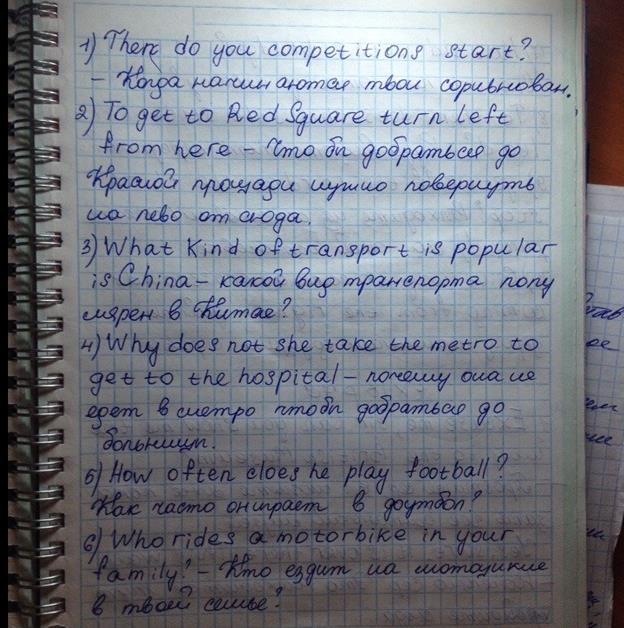 1) Then do you competitions start?
- Когда начинаются твои соривнован.
2) To get to Red Square turn left
from here - Что бы добраться до
Красной площади нужно повернуть
на лево от сюда.
3) What kind of transport is popular
is China - какой вид транспорта попу
лярен в Китае?
4) Why does not she take the metro to
get to the hospital - почему она не
едет в метро чтобы добраться до
больницы.
5) How often does he play football?
Как часто он играет в футбол?
6) Who rides a motorbike in your
family? - Кто ездит на мотоцикле
в твоей семье?